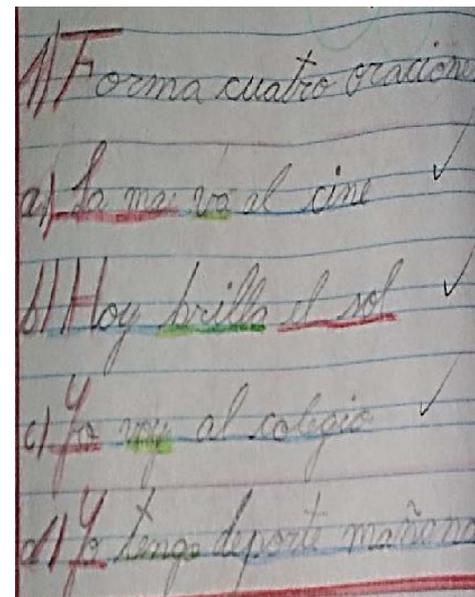 1) Forma cuatro oracione
a) La ma va al cine
b) Hoy brilla el sol
c) Yo voy al colegio
d) Yo tengo deporte mañana